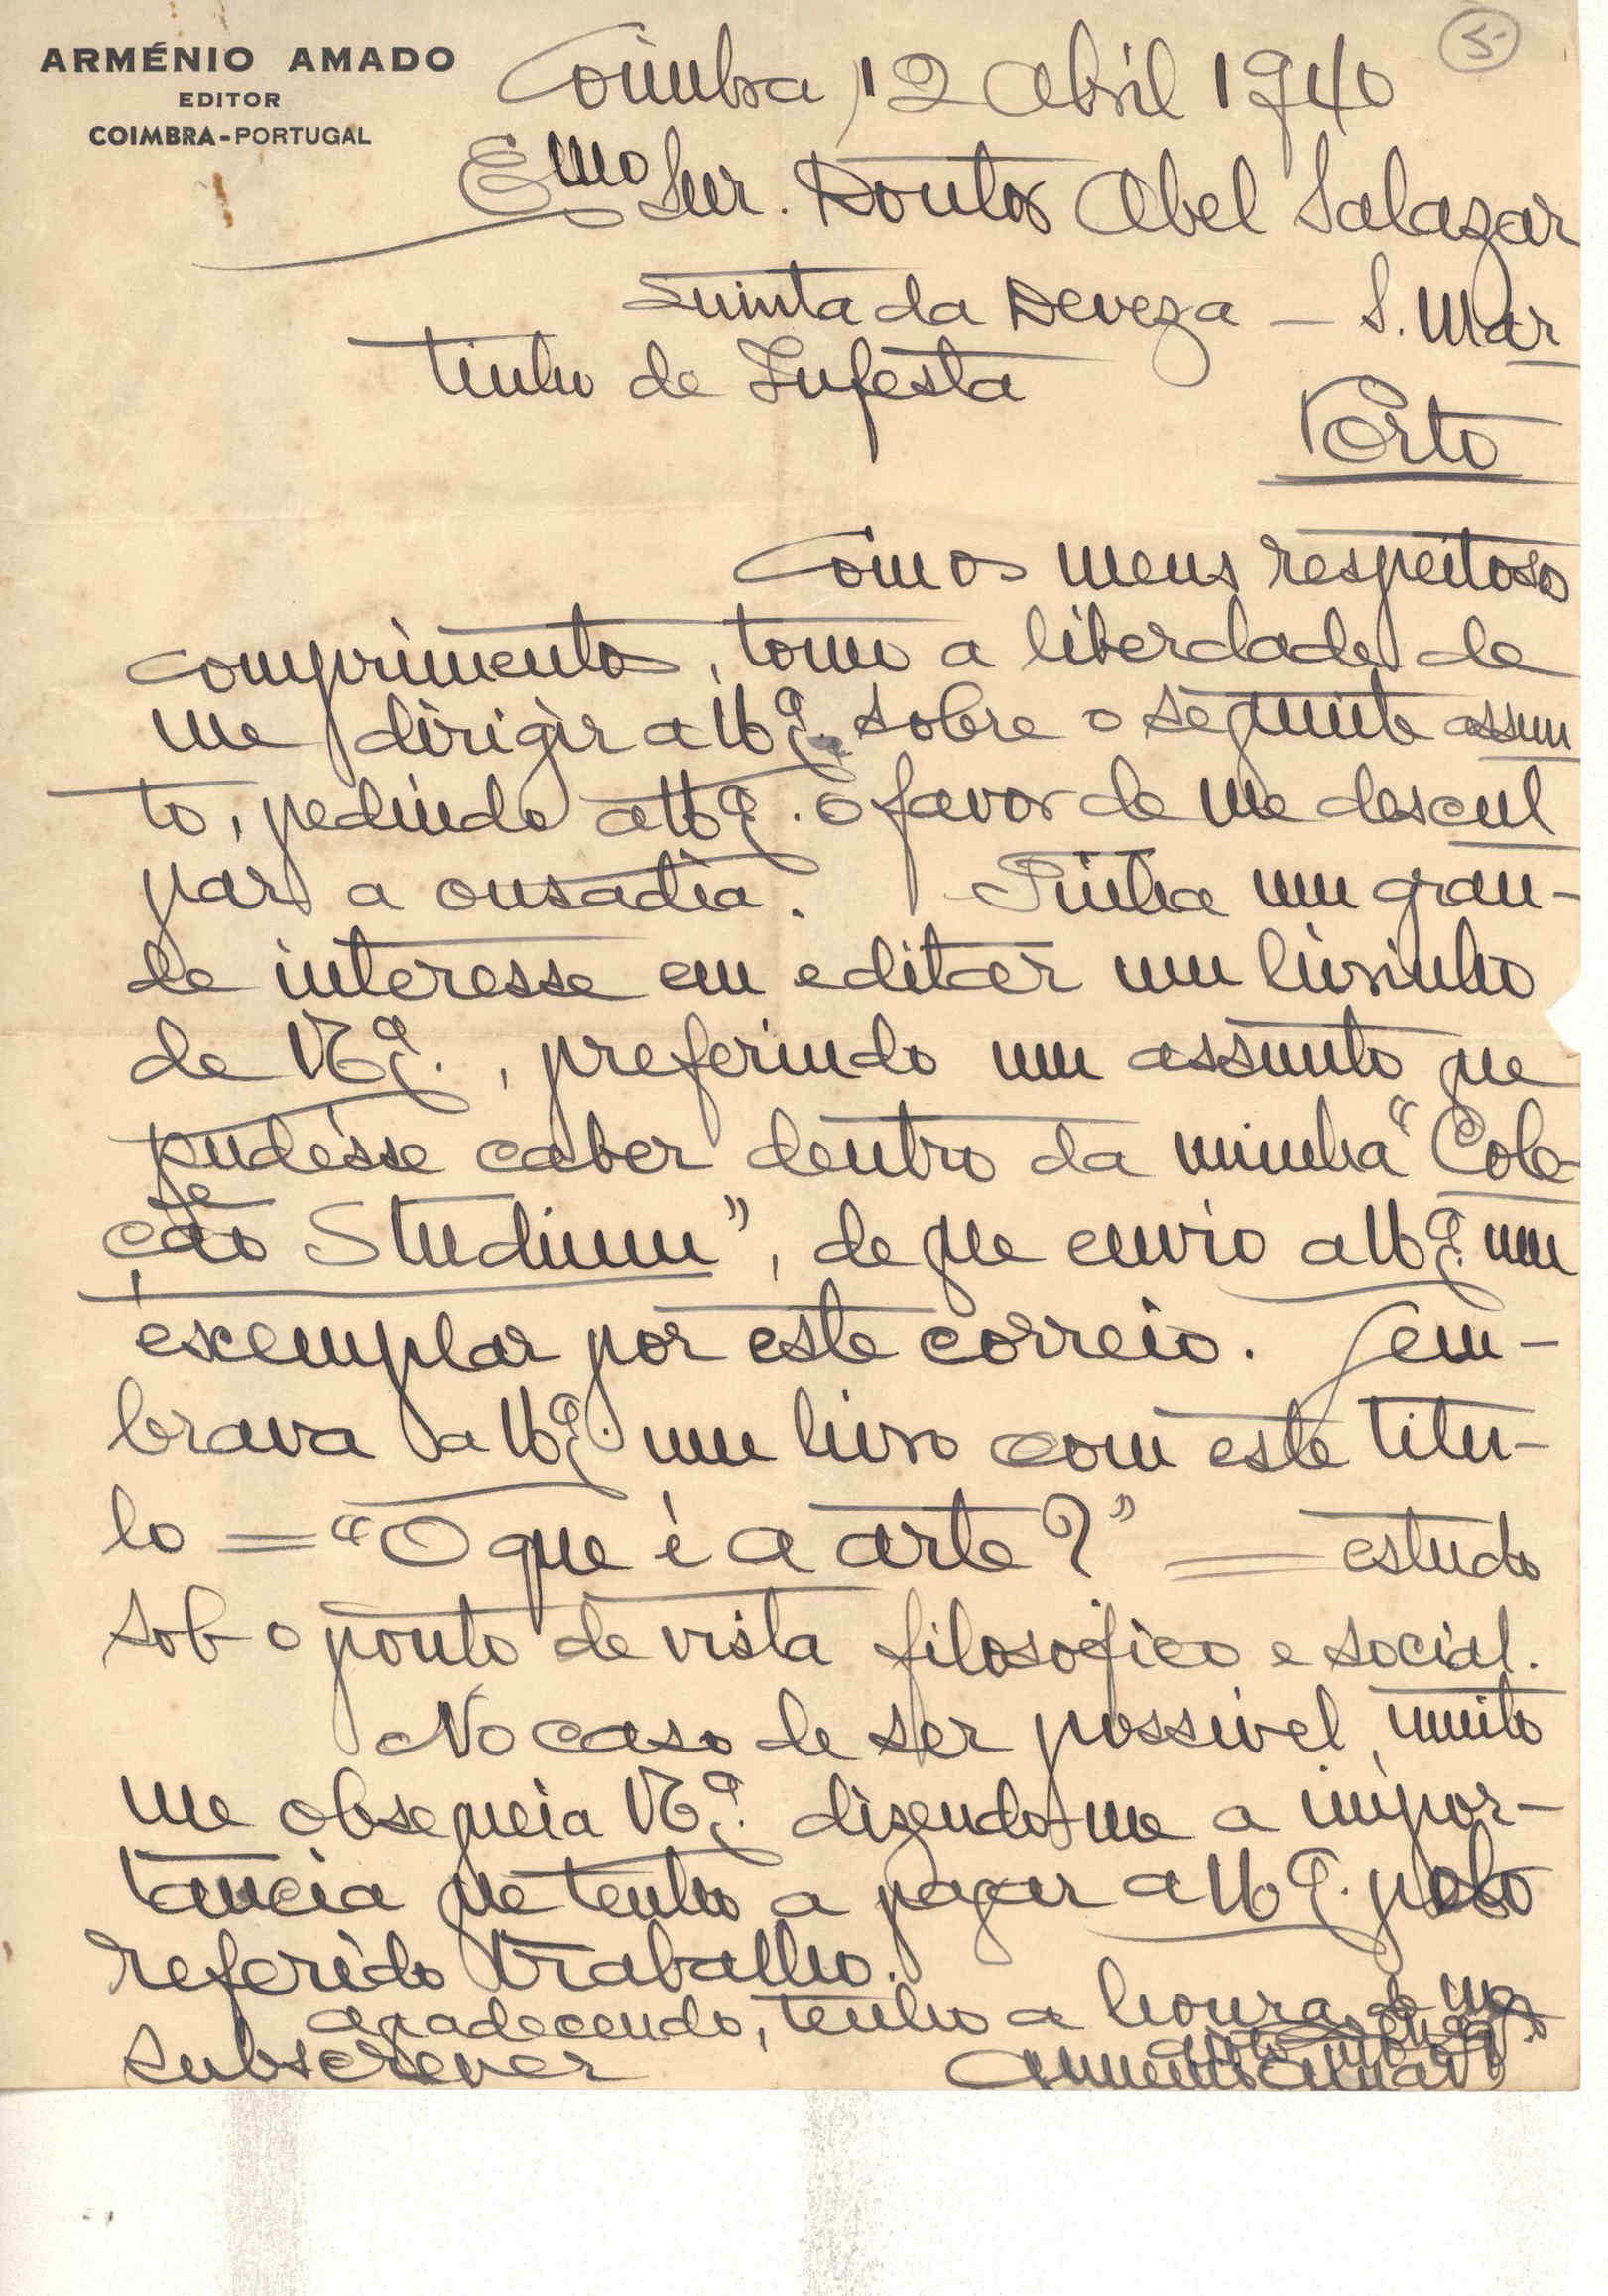 ARMÉNIO AMADO
EDITOR
COIMBRA-PORTUGAL
5-
Coimbra, 12 Abril 1940
Emo Snr. Doutor Abel Salazar
Quinta da Deveza – S. Mar
tinho de Infesta
Porto
Com os meus respeitosos
comprimentos, tomo a liberdade de
me dirigir a V. Ex.ª sobre o seguinte assun
to, pedindo a V. Ex.ª o favor de me descul
par a ousadia. Tinha um gran-
de interesse em editar um livrinho
de V. Ex.ª, preferindo um assunto que
pudésse caber dentro da minha "Cole-
cção Studium", de que envio a V. Ex.ª um
exemplar por este correio. Lem-
brava a V. Ex.ª um livro com este titu-
lo = "O que é a arte?" = estudo
sob o ponto de vista filosofico e social.
No caso de ser possivel, muito
me obsequeia V. Ex.ª dizendo-me a impor-
tancia que tenho a pagar a V. Ex.ª pelo
referido trabalho.
Agradecendo, tenho a honra de me
subscrever
Armenio Amado